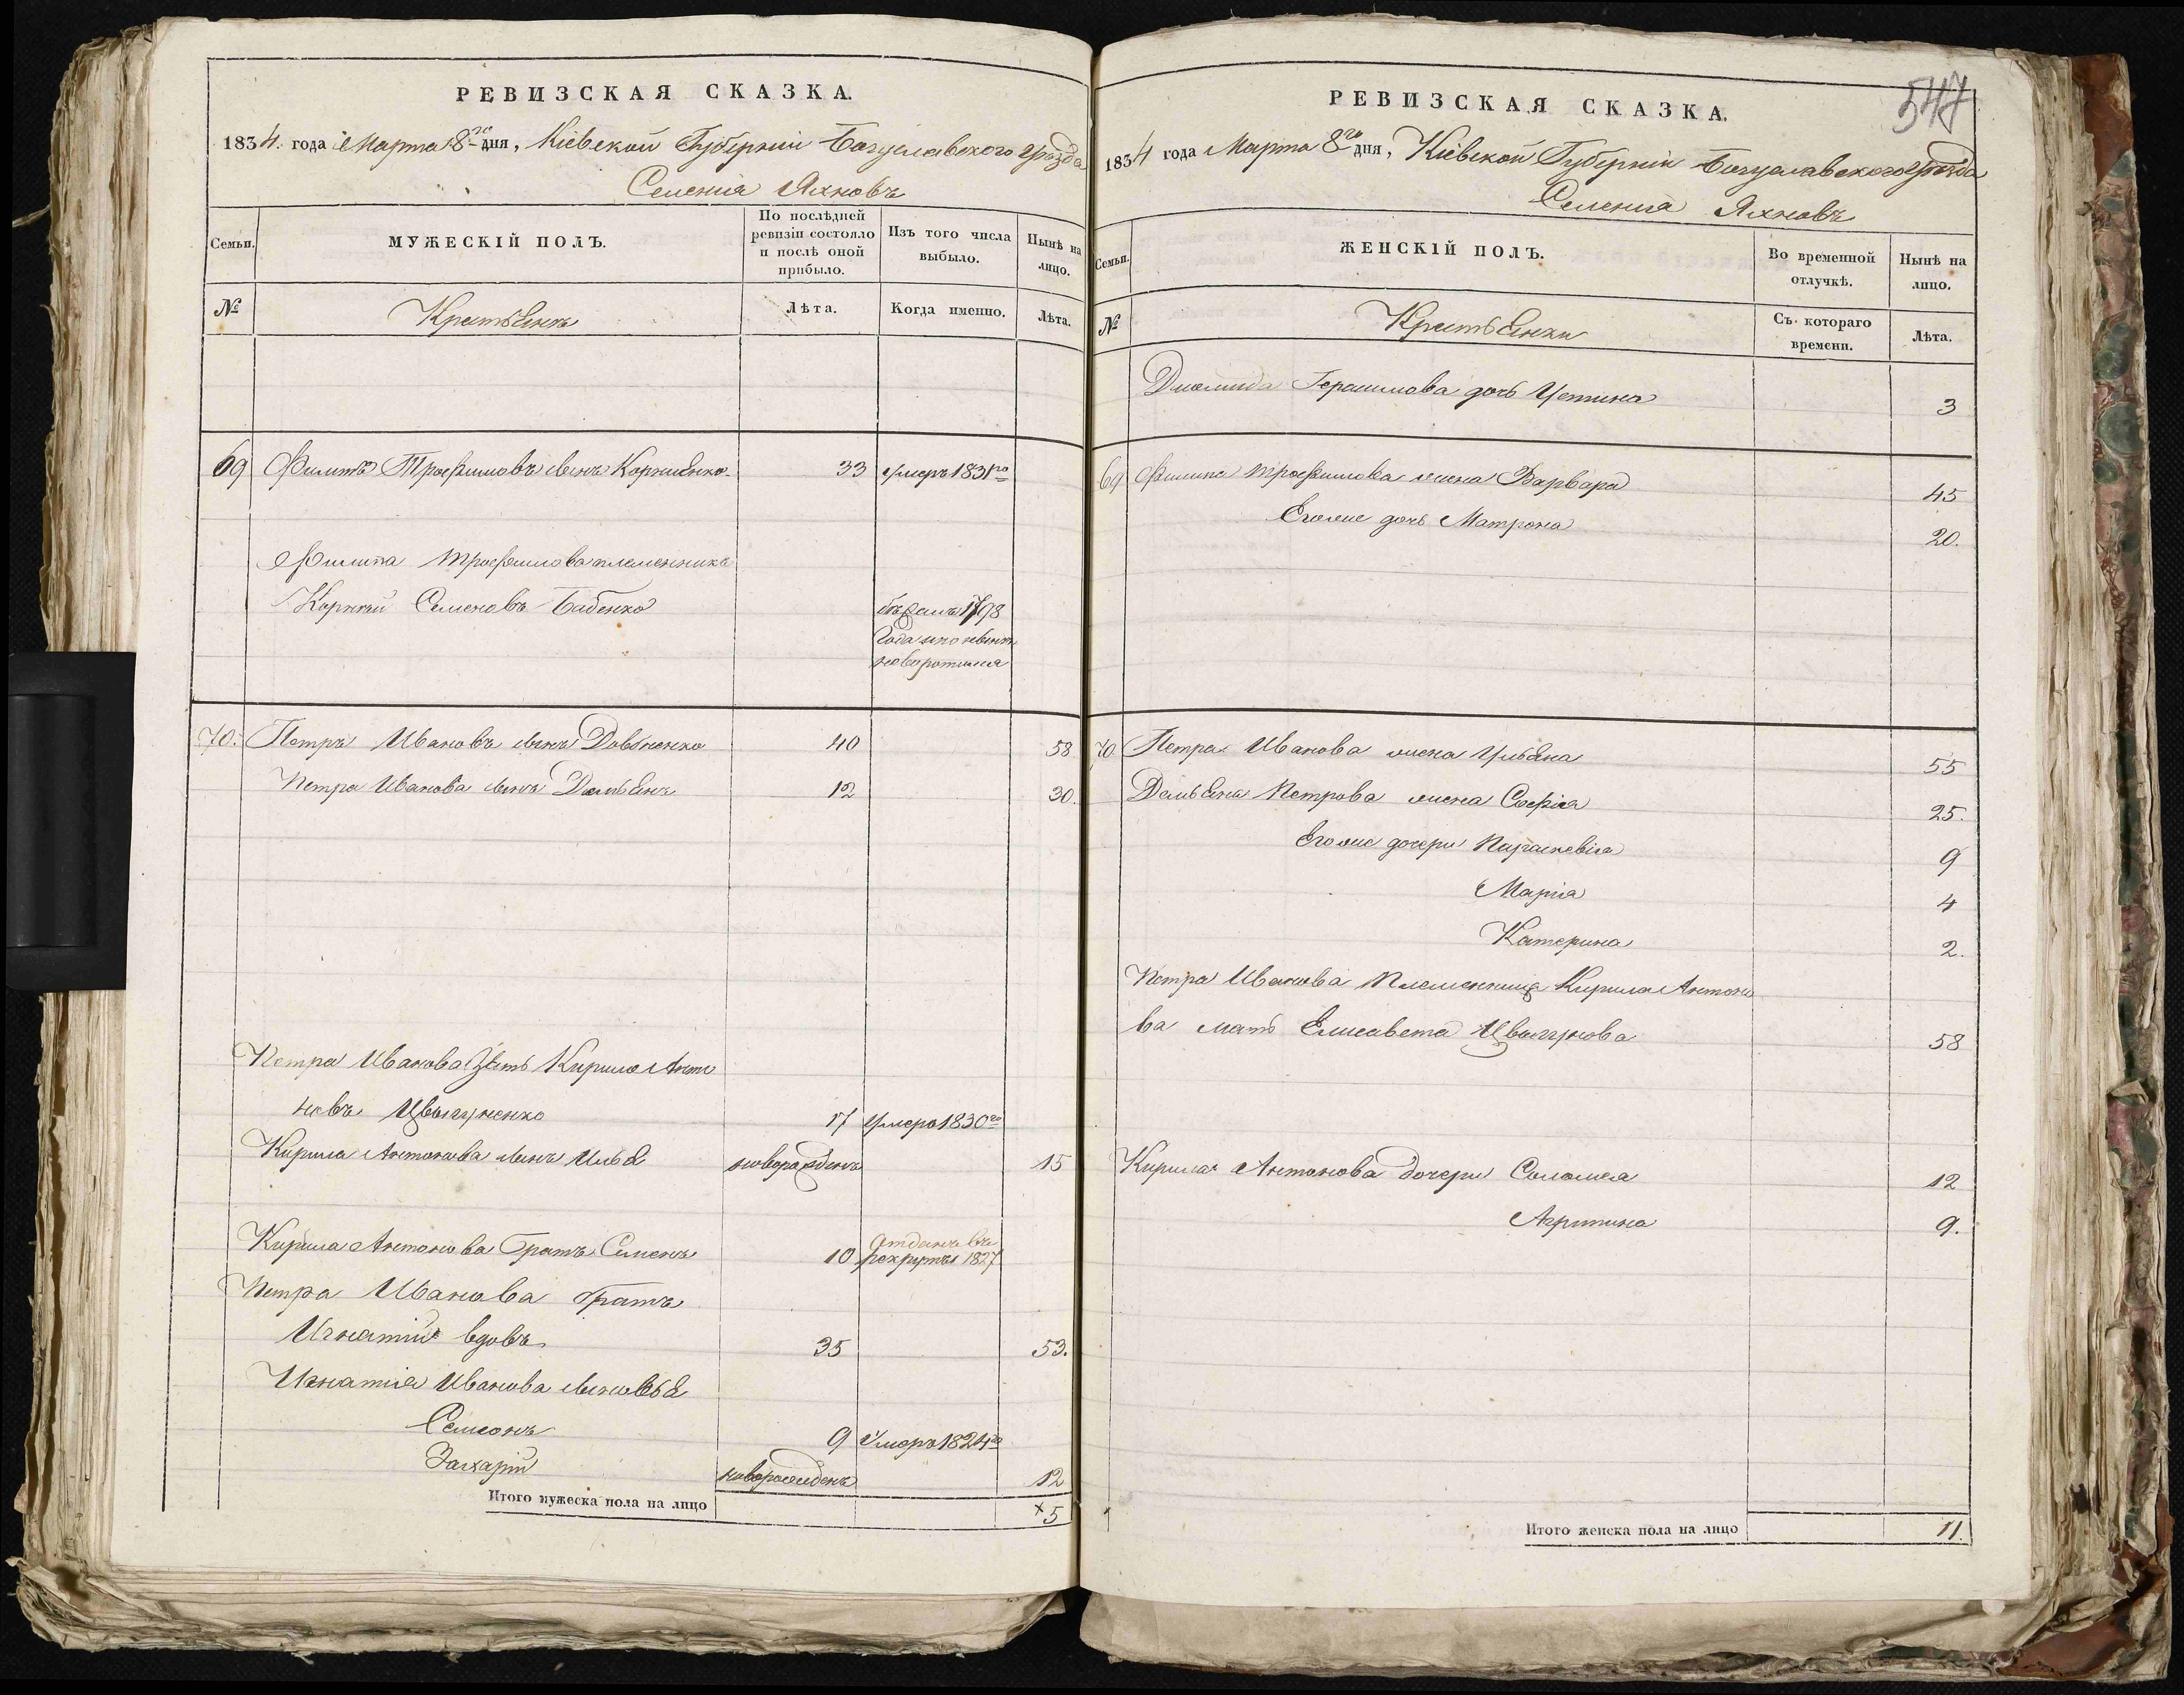 РЕВИЗСКАЯ СКАЗКА.
1834. года Марта 8го дня, Кіевской Губерніи Богуславского уѣзда
Селенія Яхновъ
Семьи.
МУЖЕСКІЙ ПОЛЪ.
По послѣдней ревизіи состояло и послѣ оной прибыло.
Изъ того числа выбыло.
Нынѣ на лицо.
№
Крестьянъ
Лѣта.
Когда именно.
Лѣта.
69 Филипъ Трофимовъ сынъ Корніенко 33 умеръ 1831го
Филипа Трофимова племенникъ
Корнѣй Семеновъ Бабенко бѣжалъ 1798
года и по нынѣ
не воротился
70. Петръ Ивановъ сынъ Довбненко 40 58
Петра Иванова сынъ Демьянъ 12 30.
Петра Иванова Зять Кирило Анто
новъ Цвыгуненко 17 умеръ 1830го
Кирила Антонова сынъ Илья новорожденъ 15
Кирила Антонова Братъ Семенъ 10 отданъ въ
рекруты 1827
Петра Иванова братъ
Игнатій вдовъ 35 53.
Игнатія Иванова сыновья
Самсонъ 9 умеръ 1824го
Захарій новорожденъ 12
Итого мужеска пола на лицо ×5
547
РЕВИЗСКАЯ СКАЗКА.
1834 года Марта 8го дня, Кіевской Губерніи Богуславского уѣзда
Селенія Яхновъ
Семьи.
ЖЕНСКІЙ ПОЛЪ.
Во временной отлучкѣ.
Нынѣ на лицо.
№
Крестьянки
Съ котораго времени.
Лѣта.
Герасимова дочь Устина 3
69 Филипа Трофимова жена Варвара 45
Его же дочь Матрона 20.
70 Петра Иванова жена Ульяна 55
Демьяна Петрова жена Софія 25.
Его же дочери Параскевія 9
Марія 4
Катерина 2.
Петра Иванова Племенница Кирила Антоно
ва мать Елисавета Цвыгунова 58
Кирила Антонова дочери Соломея 12
Агрипина 9.
Итого женска пола на лицо 11.